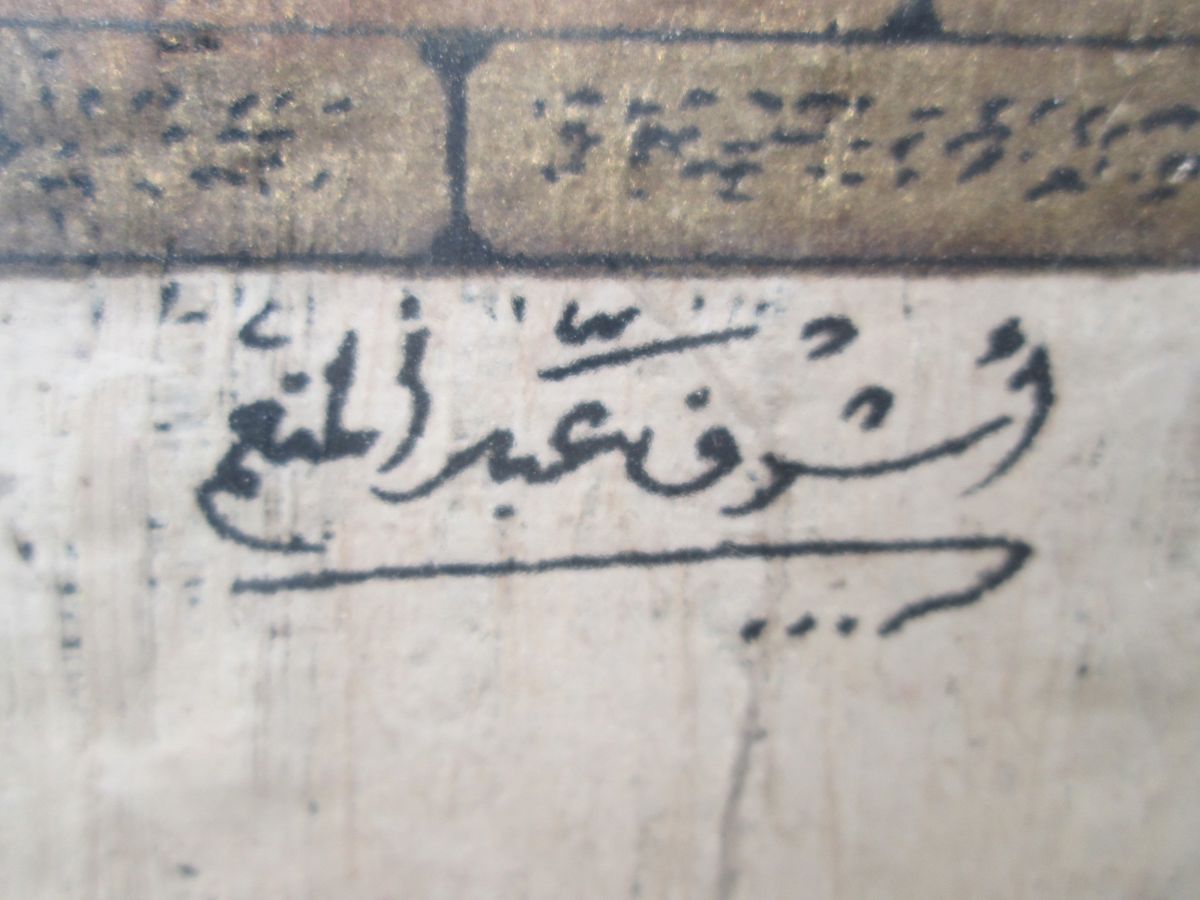 أشرف عبد المنعم